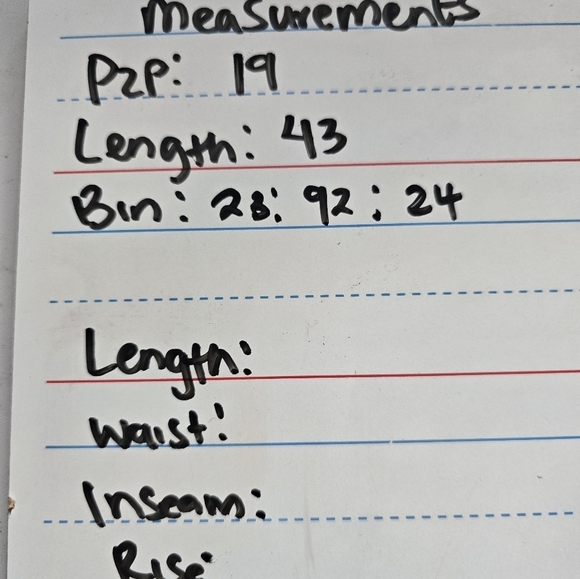 Measurements
P2P: 19
Length: 43
Bin: 28: 92: 24
Length:
Waist:
Inseam:
Rise: